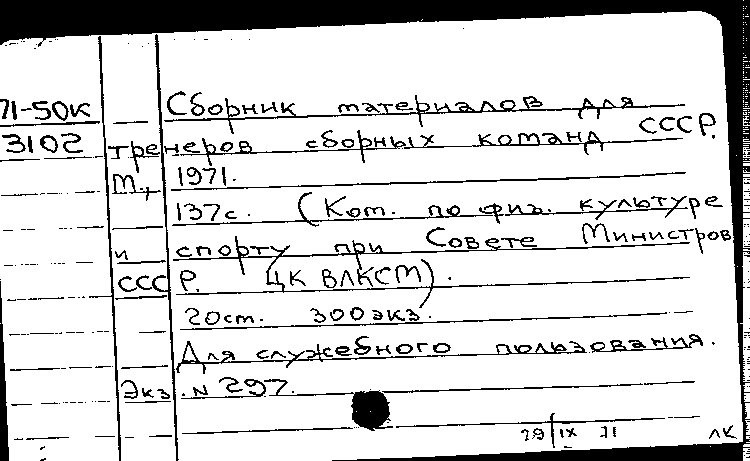 71-50к Сборник материалов для
3102 тренеров сборных команд СССР.
М., 1971.
137с. (Ком. по физ. культуре
и спорту при Совете Министров
СССР. ЦК ВЛКСМ).
20см. 300экз.
Для служебного пользования.
Экз. N 297.
29/IX 71 ЛК